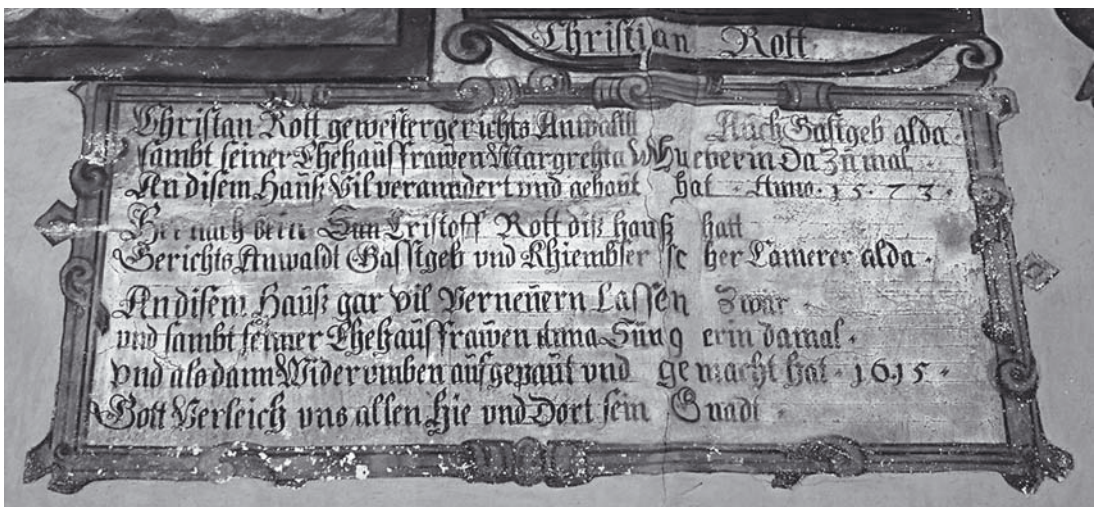 Christian Rott
Christan Rott gewester gerichts Anwaldt Auch Gastgeb alda.
sambt seiner Ehehausfrawen Margretha Hueberin Da Zu mal
An disem Hauß Vil veranndert und gebaut hat. Anno. 1573.
Her nach Sun Cristoff Rott diß hauß hatt
Gerichts Anwaldt Gasstgeb und her Camerer alda.
An disem Hauß gar vil Verneuern Lassen Zwar
und sambt seiner Ehehausfrawen Anna erin damal.
und als dann Wider umben aufgepaut und gemacht hat. 1615.
Gott Verleich uns allen hie und Dort sein Gnadt.